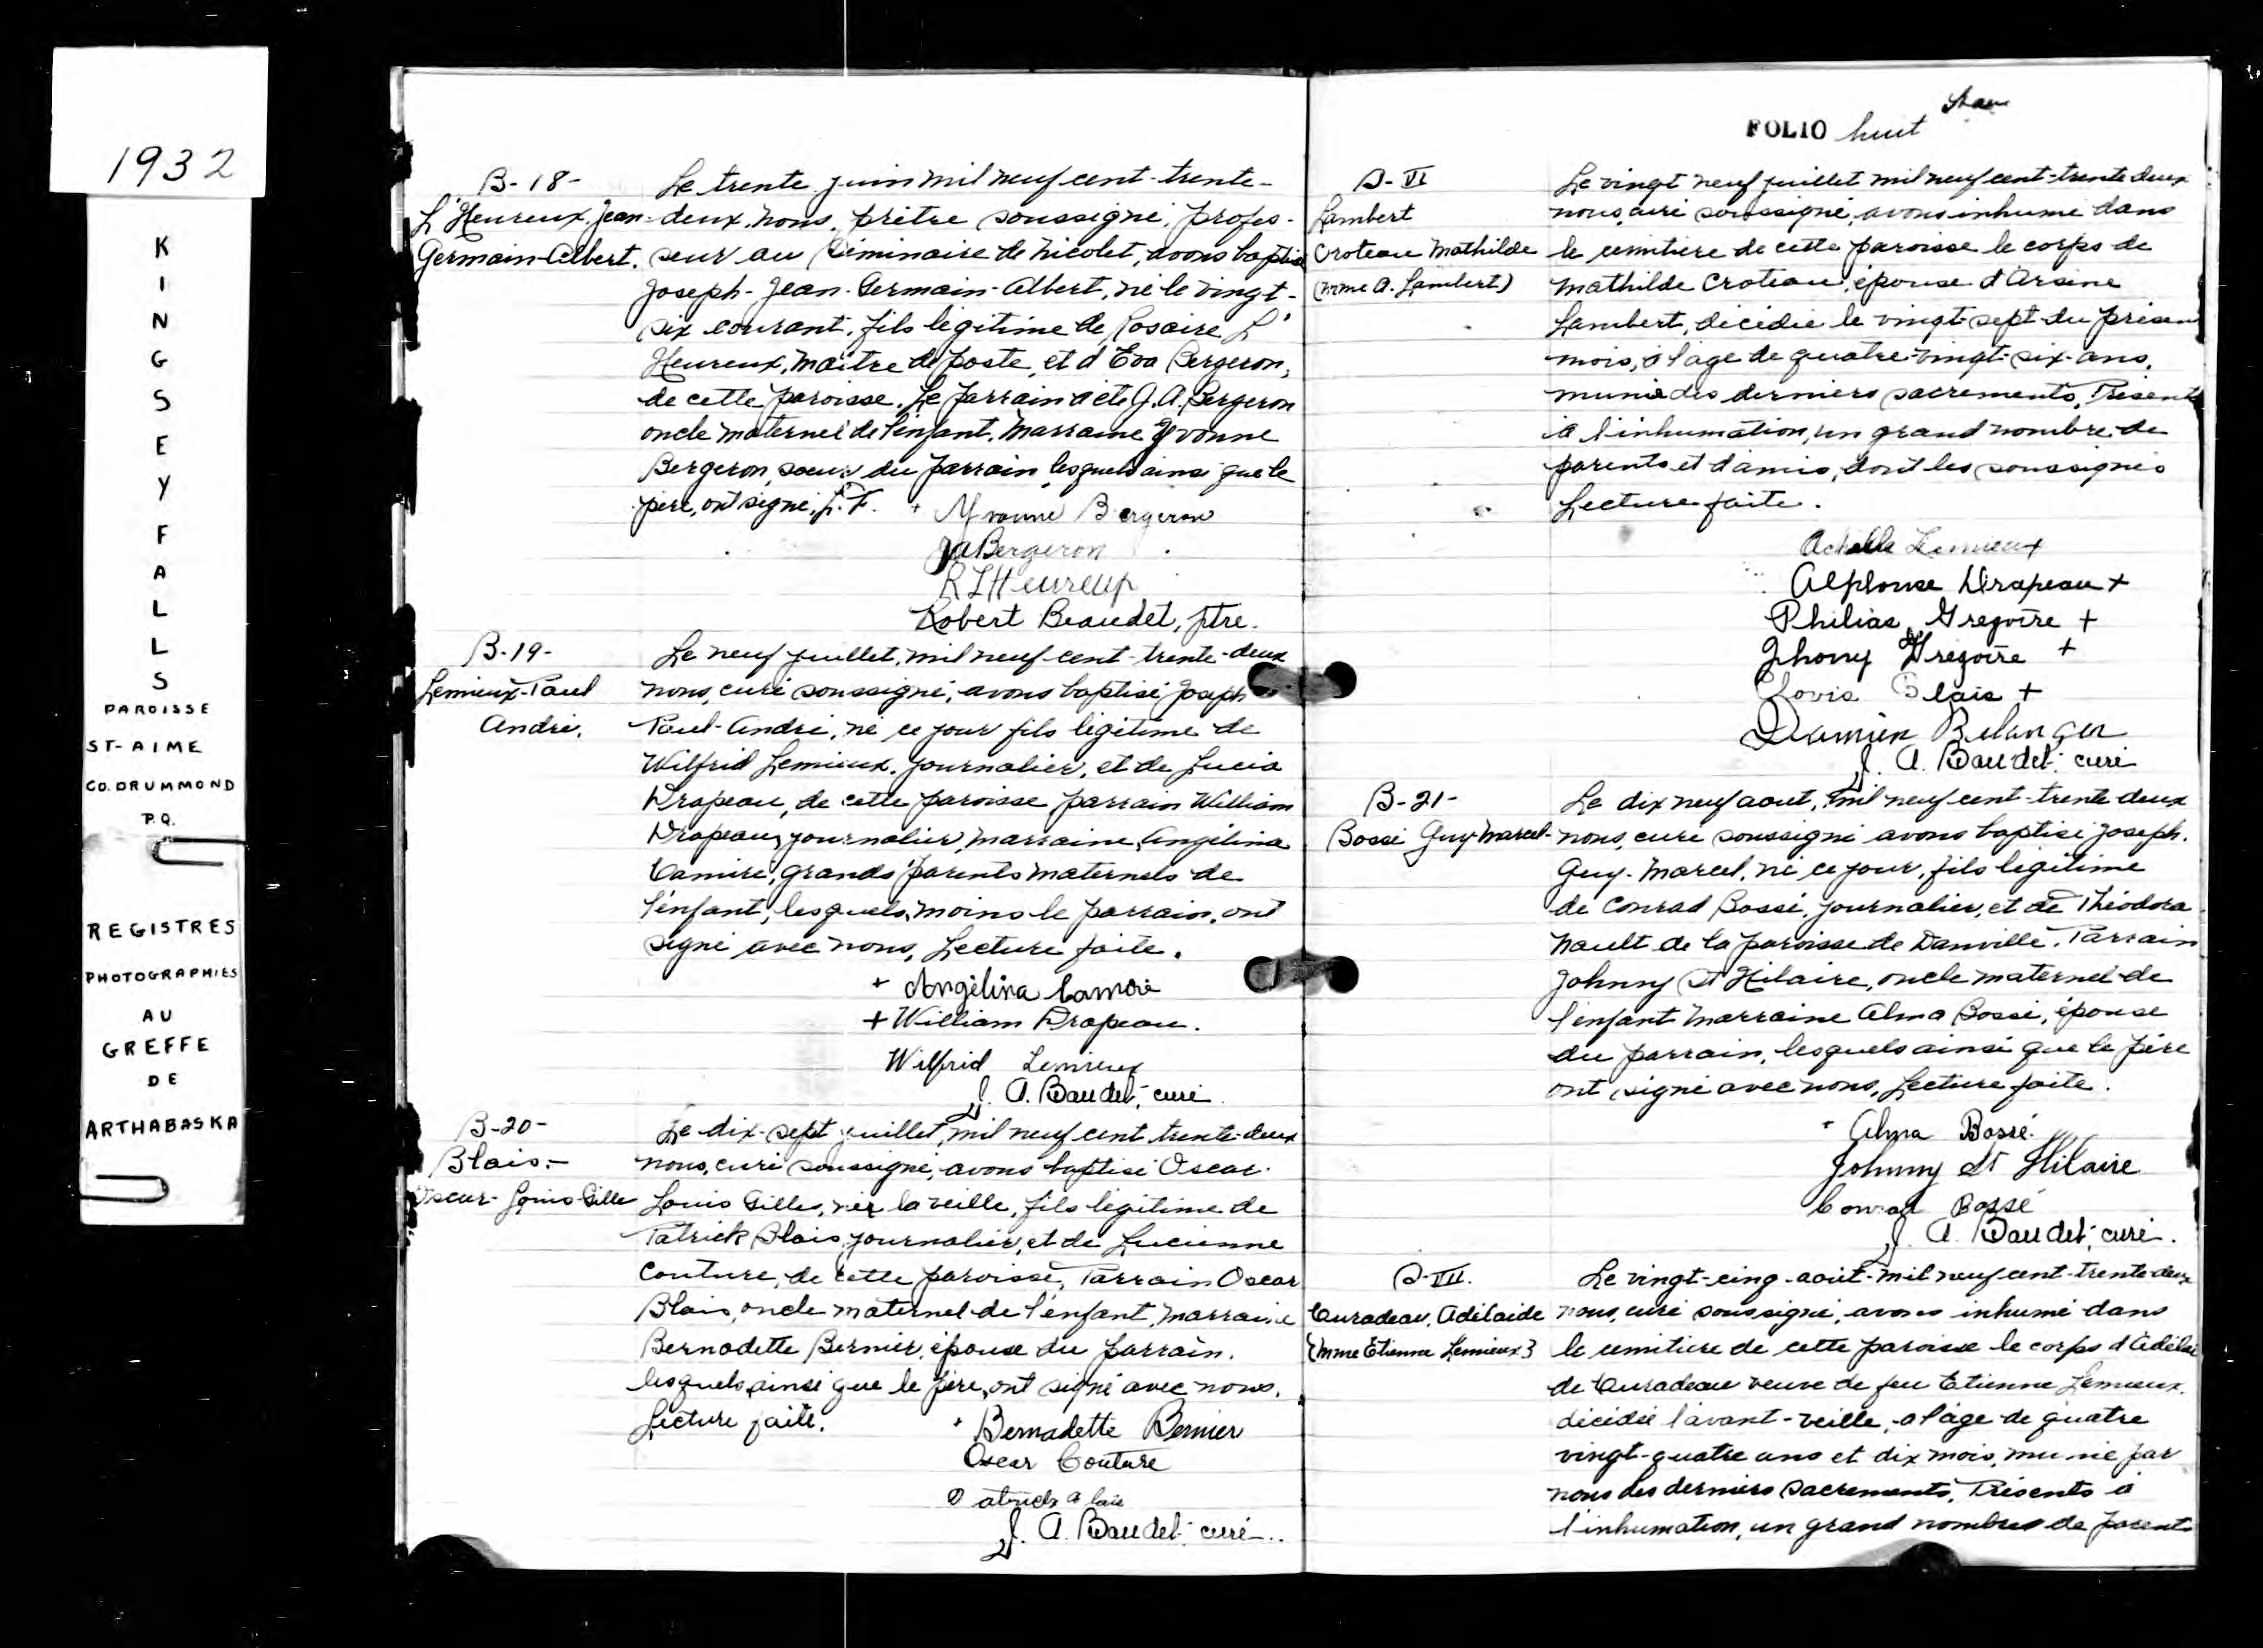 1932
KINGSEY FALLS
PAROISSE
ST-AIME
CO. DRUMMOND
P.Q.
REGISTRES
PHOTOGRAPHIÉS
AU
GREFFE
DE
ARTHABASKA
B-18-
L'Heureux, Jean-
Germain-Albert.
Le trente juin mil neuf cent-trente-
deux, nous, prêtre soussigné, profes-
seur au Séminaire de Nicolet, avons baptisé
Joseph-Jean-Germain-Albert, né le vingt-
six courant, fils légitime de Rosaire L'
Heureux, maître de poste, et d'Eva Bergeron,
de cette paroisse. Le parrain a été J. A. Bergeron
oncle maternel de l'enfant. Marraine Yvonne
Bergeron, soeur du parrain, lesquels ainsi que le
père, ont signé, L. F.
+ Yvonne Bergeron
JA Bergeron
R L'Heureux
Robert Beaudet, ptre.
B-19-
Lemieux-Paul
André.
Le neuf juillet, mil neuf cent-trente-deux
nous, curé soussigné, avons baptisé Joseph
Paul-André, né ce jour fils légitime de
Wilfrid Lemieux, journalier, et de Lucia
Drapeau, de cette paroisse parrain William
Drapeau, journalier, marraine, Angélina
Camiré, grands parents maternels de
l'enfant, lesquels, moins le parrain, ont
signé avec nous, Lecture faite.
+ Angélina Camiré
+ William Drapeau.
Wilfrid Lemieux
J. A. Baudet, curé.
B-20-
Blais.-
Oscar-Louis Gille
Le dix-sept juillet, mil neuf cent, trente-deux
nous, curé soussigné, avons baptisé Oscar
Louis Gilles, né la veille, fils légitime de
Patrick Blais, journalier, et de Lucienne
Couture, de cette paroisse, Parrain Oscar
Blais, oncle maternel de l'enfant, marraine
Bernadette Bernier, épouse du parrain.
lesquels, ainsi que le père, ont signé avec nous.
Lecture faite.
+ Bernadette Bernier
Oscar Couture
Patrick Blais
J. A. Baudet, curé..
FOLIO huit
S-VI
Lambert
Croteau Mathilde
(Mme A. Lambert)
Le vingt neuf juillet mil neuf cent-trente deux
nous, curé soussigné, avons inhumé dans
le cimitière de cette paroisse le corps de
Mathilde Croteau, épouse d'Arsène
Lambert, décédée le vingt-sept du présen
mois, à l'âge de quatre-vingt-six-ans,
munie des derniers sacrements, Présents
à l'inhumation, un grand nombre de
parents et d'amis, dont les soussignés
Lecture faite.
Achille Lemieux
Alphonse Drapeau +
Philias Gregoire +
Jhony Gregoire +
Clovis Blais +
Damien Belanger
J. A. Baudet, curé
B-21-
Bossé Guy-Marcel-
Le dix neuf aout, mil neuf cent-trente deux
nous, curé soussigné avons baptisé Joseph.
Guy-Marcel, né ce jour, fils légitime
de Conrad Bossé, journalier, et de Théodora
Nault de la paroisse de Danville. Parrain
Johnny St Hilaire, oncle maternel de
l'enfant Marraine Alma Bossé, épouse
du parrain, lesquels ainsi que le père
ont signé avec nous, Lecture faite.
+ Alma Bossé.
Johnny St Hilaire
Conrad Bossé
J. A. Baudet, curé.
S-VII.
Curadeau, Adélaide
(Mme Etienne Lemieux)
Le vingt-cinq-août-mil neuf-cent-trente deux
nous, curé soussigné, avons inhumé dans
le cimitière de cette paroisse le corps d'Adélaï
de Curadeau veuve de feu Etienne Lemieux.
décédée l'avant-veille, à l'âge de quatre
vingt-quatre ans et dix mois, munie par
nous des derniers sacrements, Présents à
l'inhumation, un grand nombres de parents